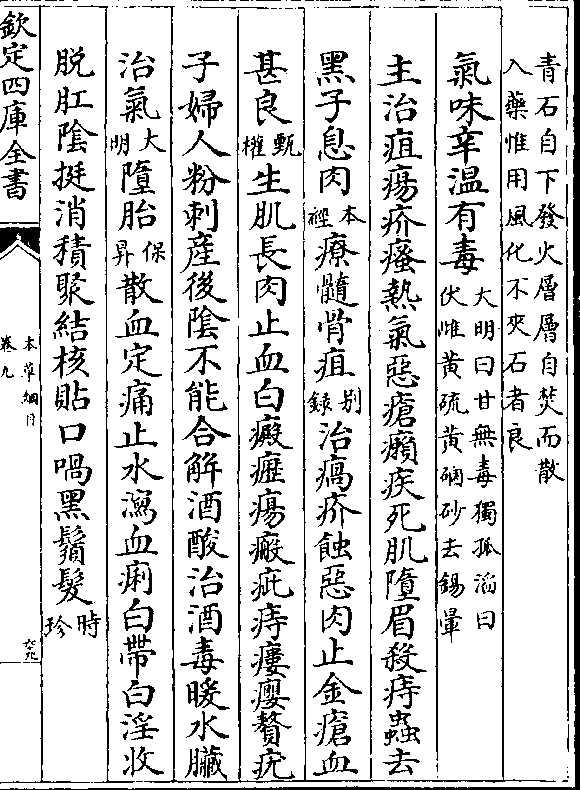 青石自下發火層層自焚而散
入藥惟用風化不夾石者良
氣味辛溫有毒大明曰甘無毒獨孤滔曰
伏雌黃硫黃硇砂去錫暈
主治疽瘍疥瘙熱氣惡瘡癩疾死肌墮眉殺痔蟲去
黑子息肉本經療髓骨疽别錄治瘑疥蝕惡肉止金瘡血
甚良甄權生肌長肉止血白癜癧瘍瘢疵痔瘻癭贅疣
子婦人粉刺産後陰不能合解酒酸治酒毒暖水臟
治氣大明墮胎保昇散血定痛止水瀉血痢白帶白淫收
脱肛陰挺消積聚結核貼口喎黑鬚髮時珍
欽定四庫全書
本草綱目
卷九